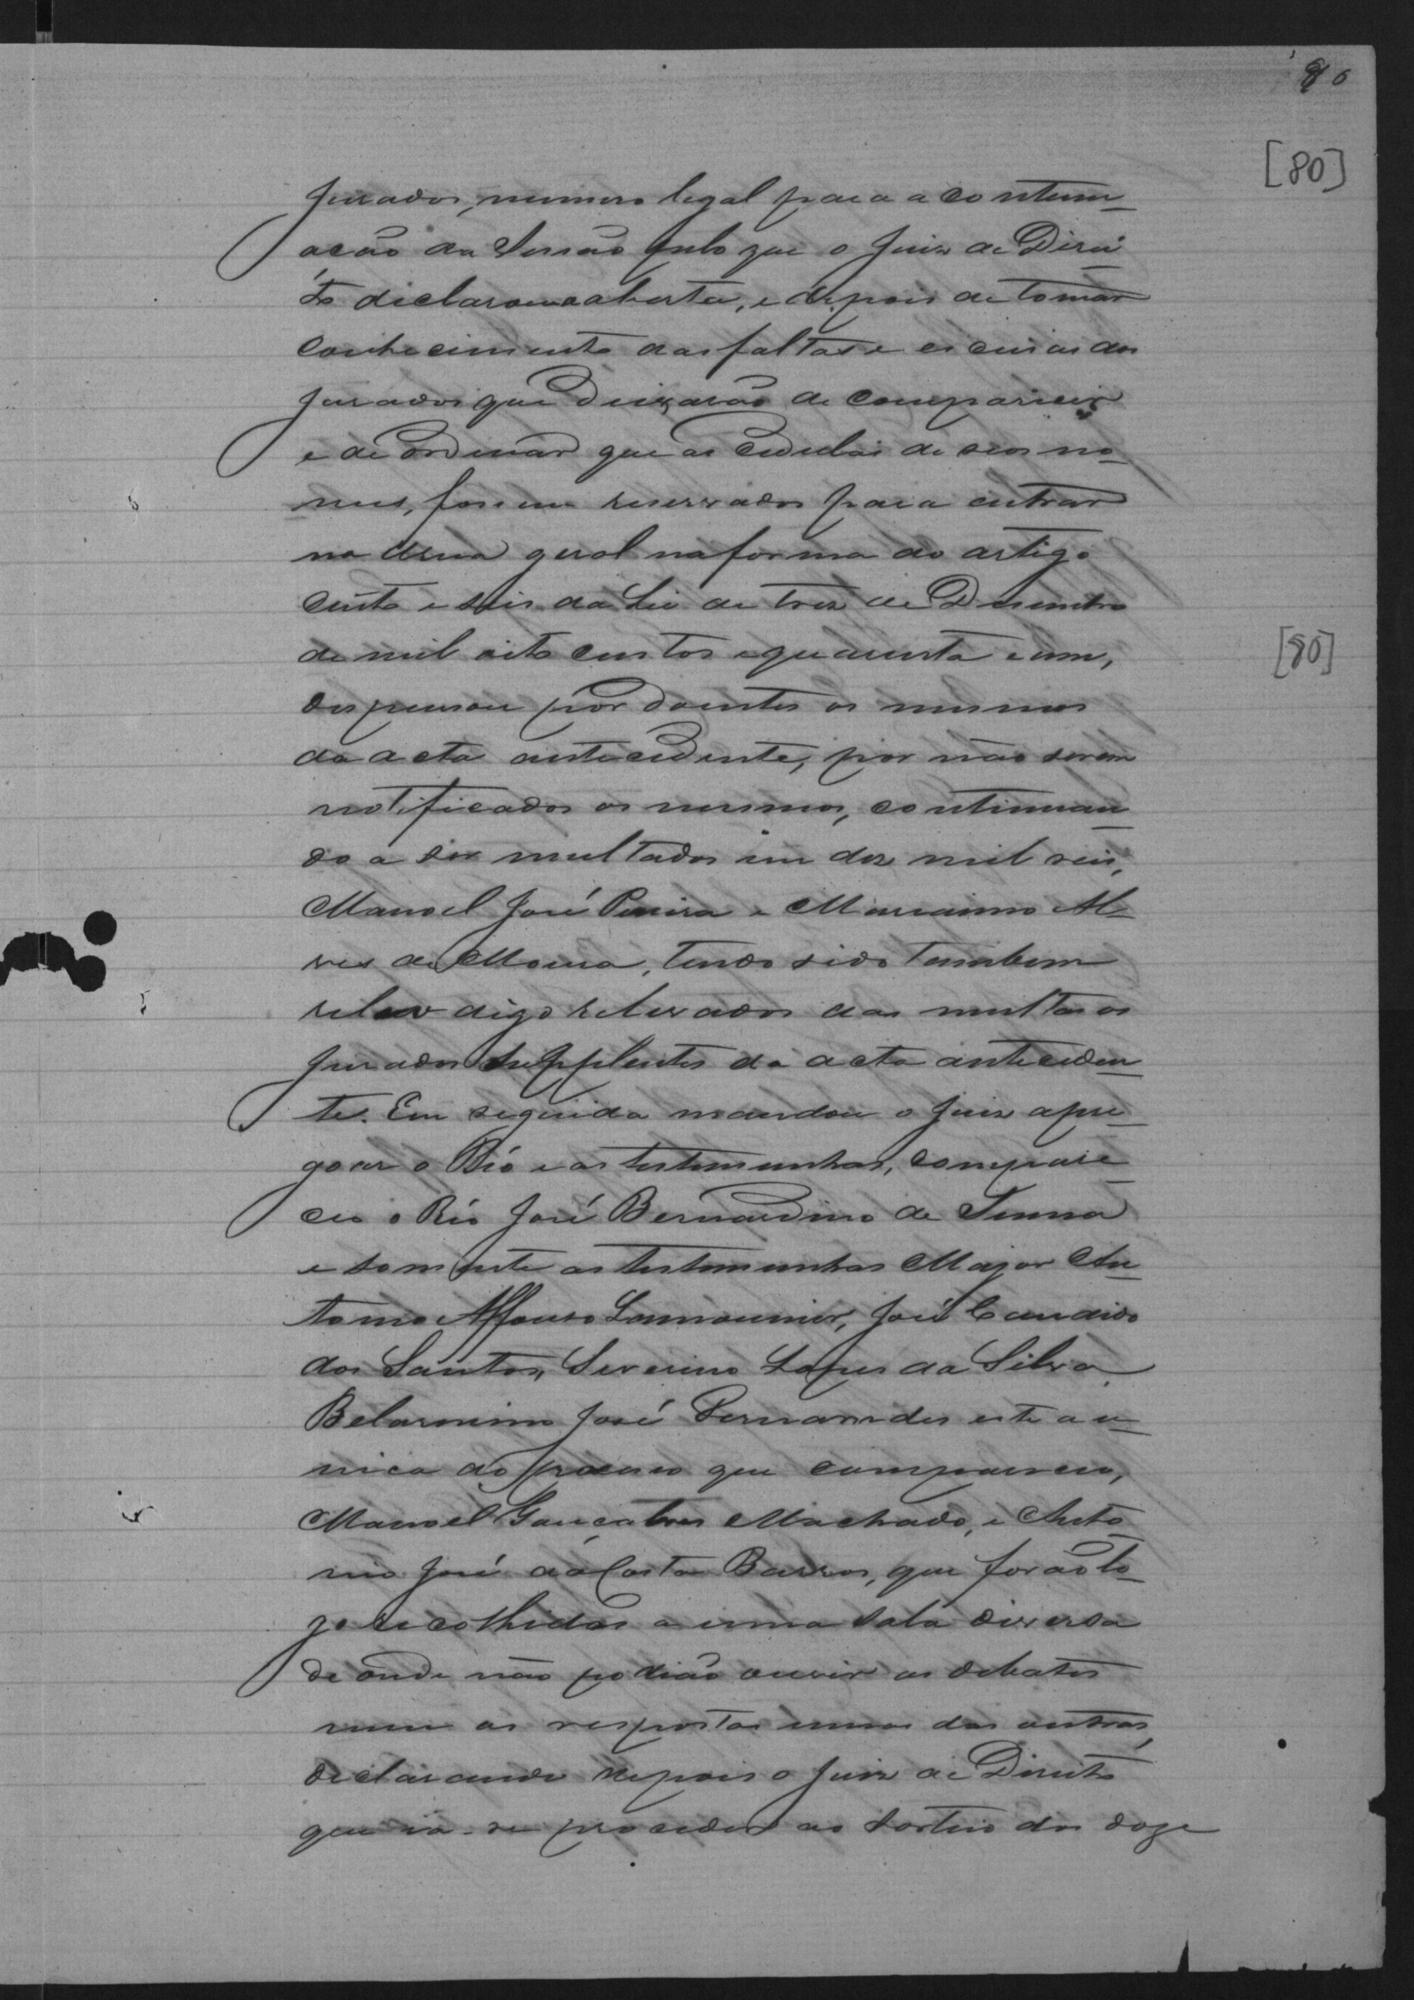 80
[80]
Jurados, numero legal para a continu-
acão da Sessão pelo que o Juiz de Direi-
to declarou-a aberta, e depois de tomar
conhecimento das faltas e escusas dos
Jurados que deixarão de comparecer
e de ordenar que as cedulas de seos no-
mes, fossem reservados para entrar
na Urna geral na forma do artigo
cento e seis da Lei de tres de Desembro
de mil oito centos e quarenta e um,
[80]
dispensou por doentes os mesmos
da acta antecedente, por não serem
notificados os mesmos, continuan-
do a ser multados em dez mil reis,
Manoel José Pereira e Marianno Al-
ves de Moura, tendo sido tambem
relev digo relevados das multas os
Jurados supplentes da acta anteceden-
te. Em seguida mandou o Juiz apre-
goar o Réo e as testemunhas, compare-
ceo o Réo José Bernardino de Senna
e somente as testemunhas Major An-
tonio Affonso Lamounier, José Candido
dos Santos, Severino Lopes da Silva
Belarmino José Fernandes este a u-
nica do processo que compareceo,
Manoel Gonçalves Machado, e Anto
nio José da Costa Barros, que forão lo-
go recolhidas a uma sala diversa
de onde não podião ouvir os debates
nem as respostas umas das outras,
declarando depois o Juiz de Direito
que ia-se proceder ao sorteio dos doze